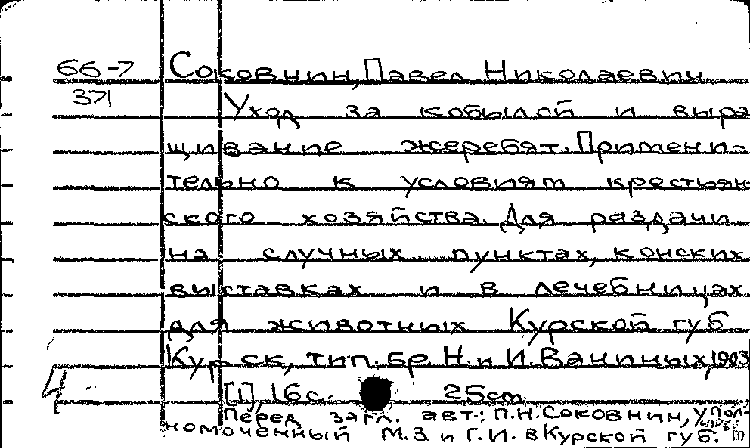 66-7 Соковнин, Павел Николаевич
371
Уход за кобылой и выра
щивание жеребят. Примени-
тельно к условиям крестьян
ского хозяйства. Для раздачи
на случных пунктах, конских
выставках и в лечебницах
для животных Курской губ
Курск, тип. бр. Н. и И. Ваниных, 1903
4 [1], 16с. 25см
Перед загл. авт.: П.Н. Соковнин, упол-
номоченный М.З и Г.И. в Курской губ.